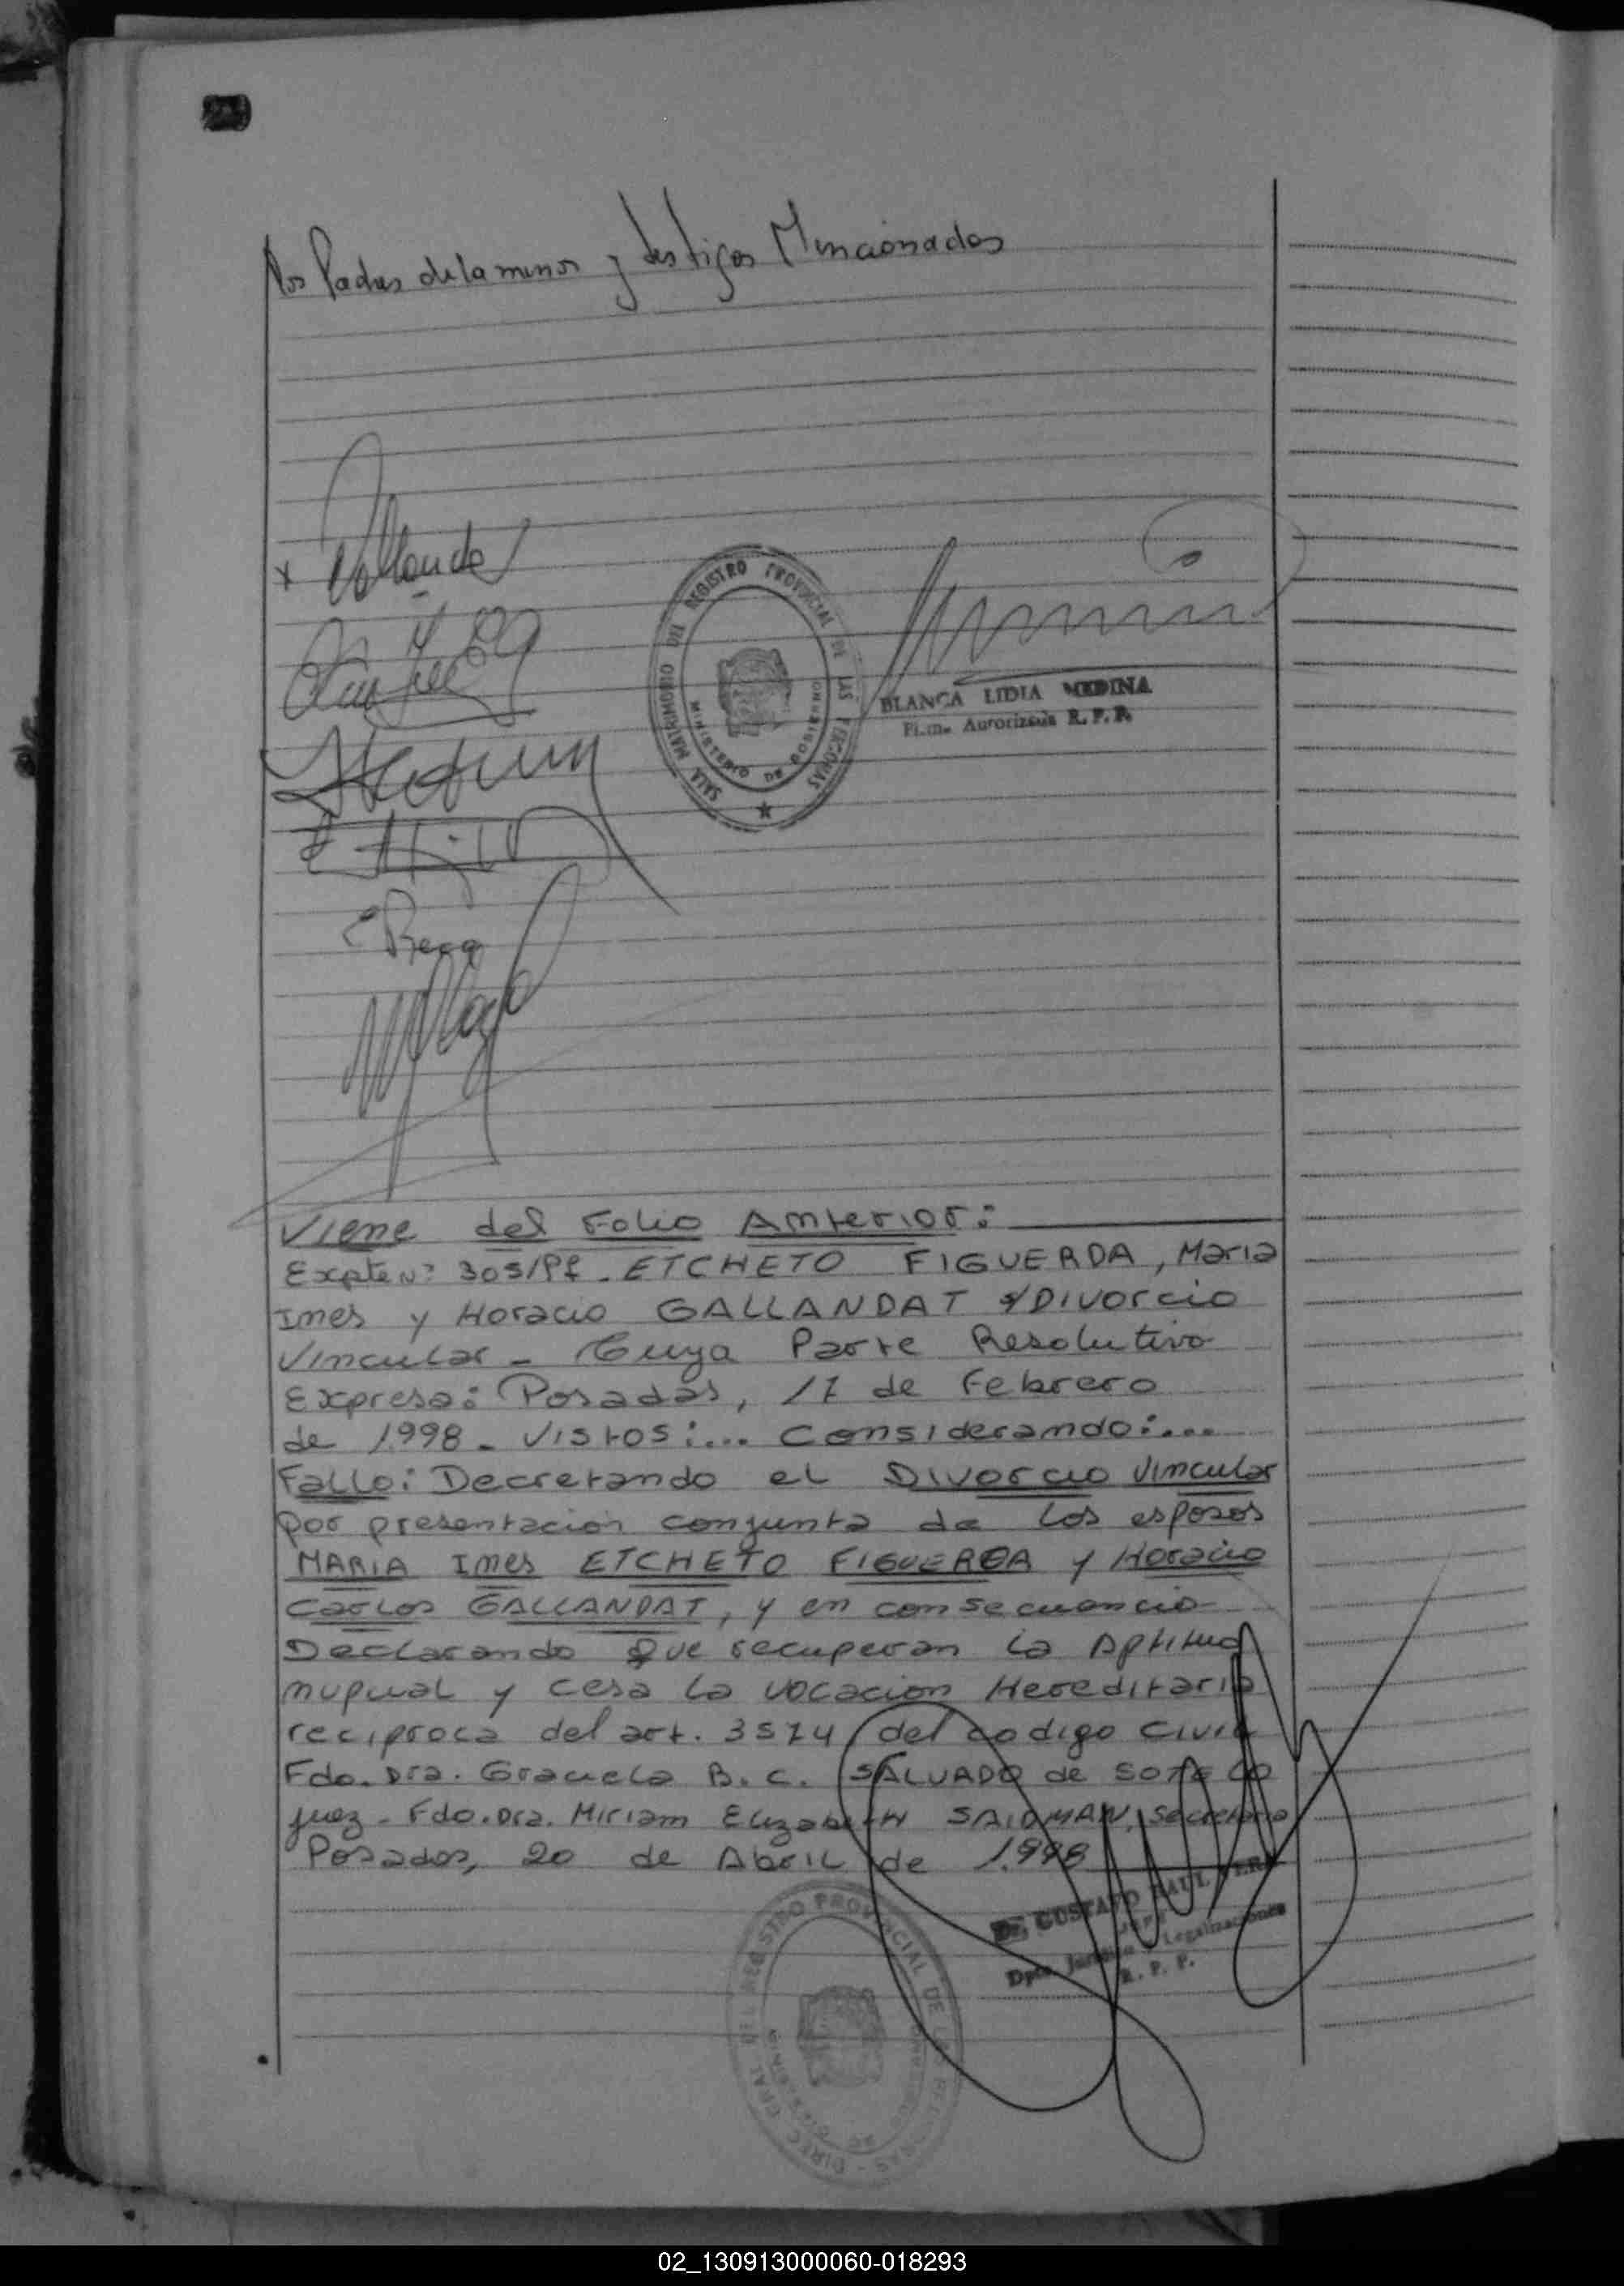 los Padres de la menor y testigos Mencionados
SALA MATRIMONIO DEL REGISTRO PROVINCIAL DE LAS PERSONAS
MINISTERIO DE GOBIERNO
BLANCA LIDIA MEDINA
Firma Autorizada R. P. P.
Viene del Folio Anterior:
Expte Nº 305/Pf. ETCHETO FIGUERDA, Maria
Ines y Horacio GALLANDAT s/Divorcio
Vincular - Cuya Parte Resolutiva
Expresa: Posadas, 17 de Febrero
de 1998 - Vistos:... Considerando:...
Fallo: Decretando el Divorcio Vincular
por presentacion conjunta de los esposos
MARIA Ines ETCHETO FIGUEROA y Horacio
Carlos GALLANDAT, y en consecuencia
Declarando que recuperan la Aptitud
nupcial y cesa la vocacion Hereditaria
reciproca del art. 3574 del codigo Civil
Fdo. Dra. Graciela B. C. SALVADO de SOTELO
juez - Fdo. Dra. Miriam Elizabeth SAIDMAN, Secretaria
Posadas, 20 de Abril de 1.998
Dr. GUSTAVO RAUL
JEFE
Dpto. Juridico y Legalizaciones
R. P. P.
02_130913000060-018293